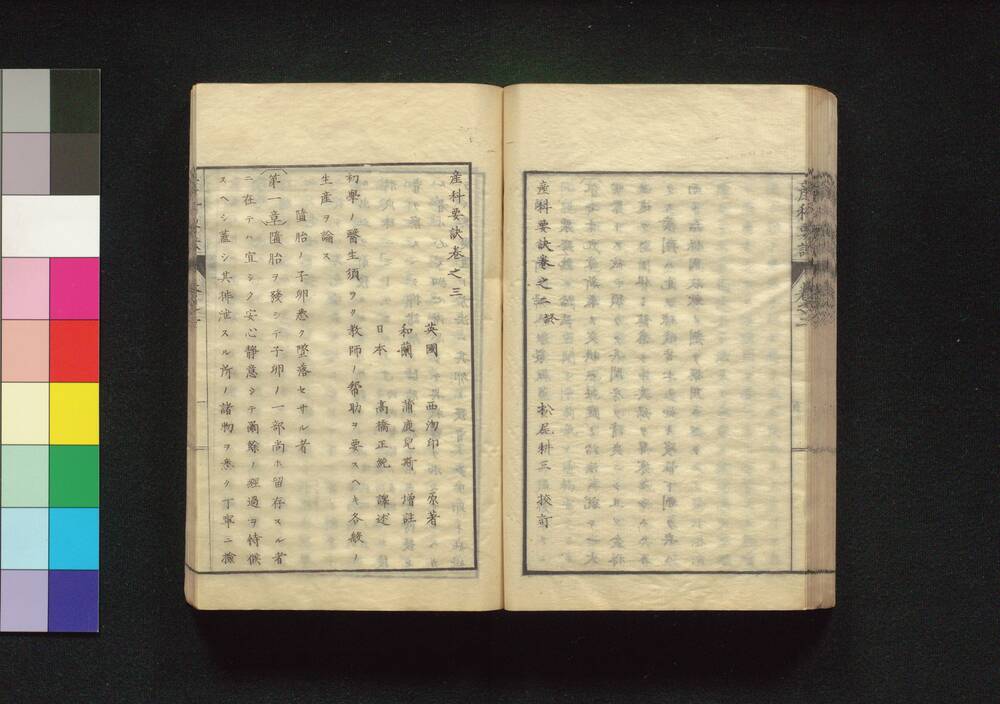 産科要訣巻之二 終
松尾耕三 挍訂
産科要訣巻之三
英國 西洶印 原著
和蘭 蒲鹿兒斯 増註
日本 高橋正純 譯述
初學ノ醫生須ラク教師ノ幇助ヲ要スヘキ各般ノ
生産ヲ論ス
墮胎ノ子卵悉ク墜落セサル者
第一章 墮胎ヲ發シテ子卵ノ一部尚ホ留存スル者
ニ在テハ宜シク安心静意シテ爾餘ノ經過ヲ待候
スヘシ蓋シ其排泄スル所ノ諸物ヲ悉ク丁寧ニ撿
産科要訣